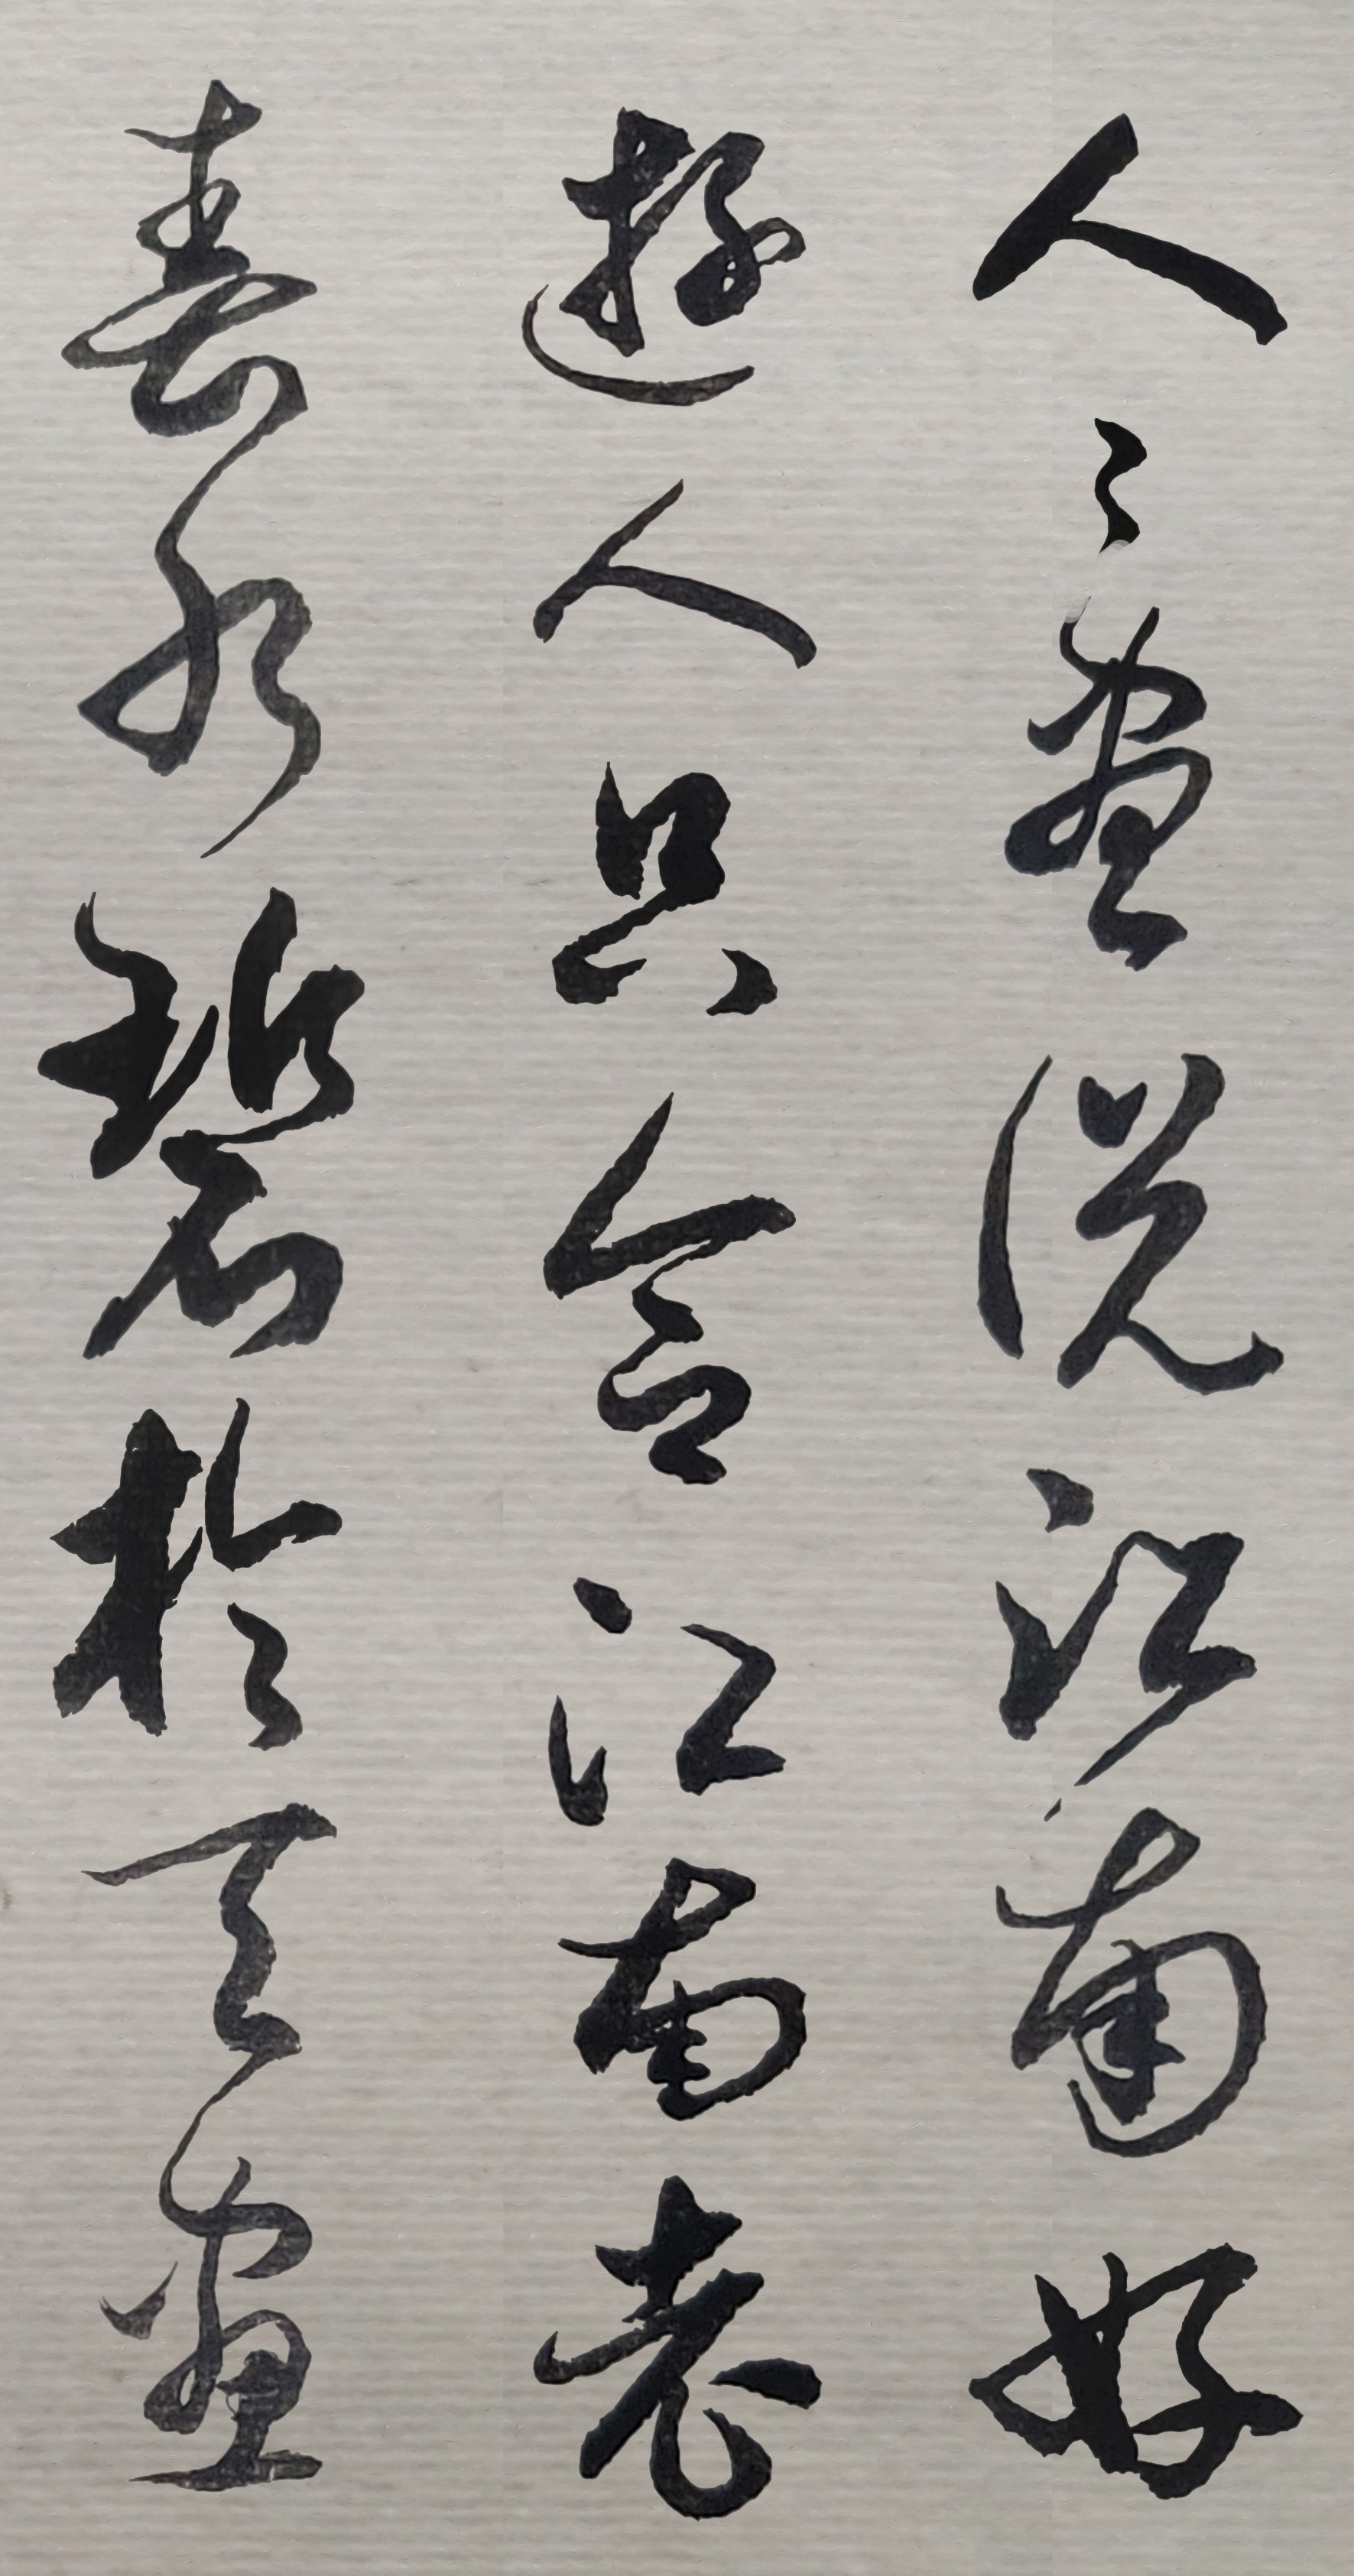 人〻盡説江南好
遊人只合江南老
春水碧於天畫